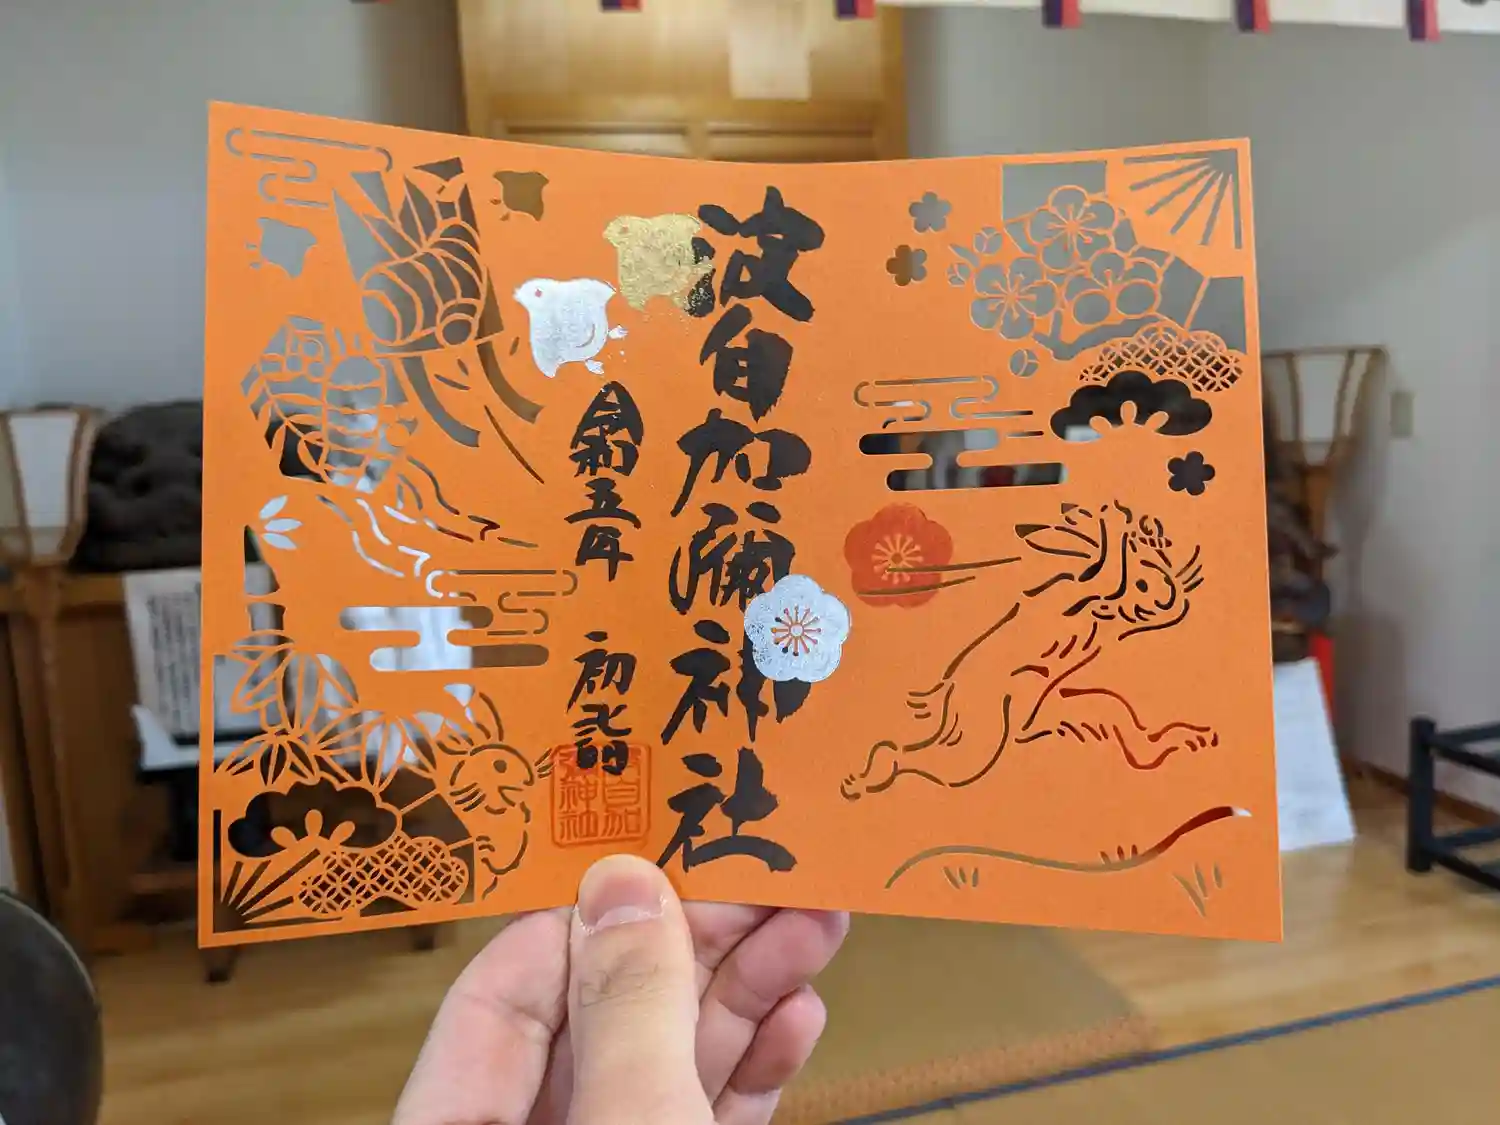 波自加彌神社
令和五年
初詣
波自加
彌神社